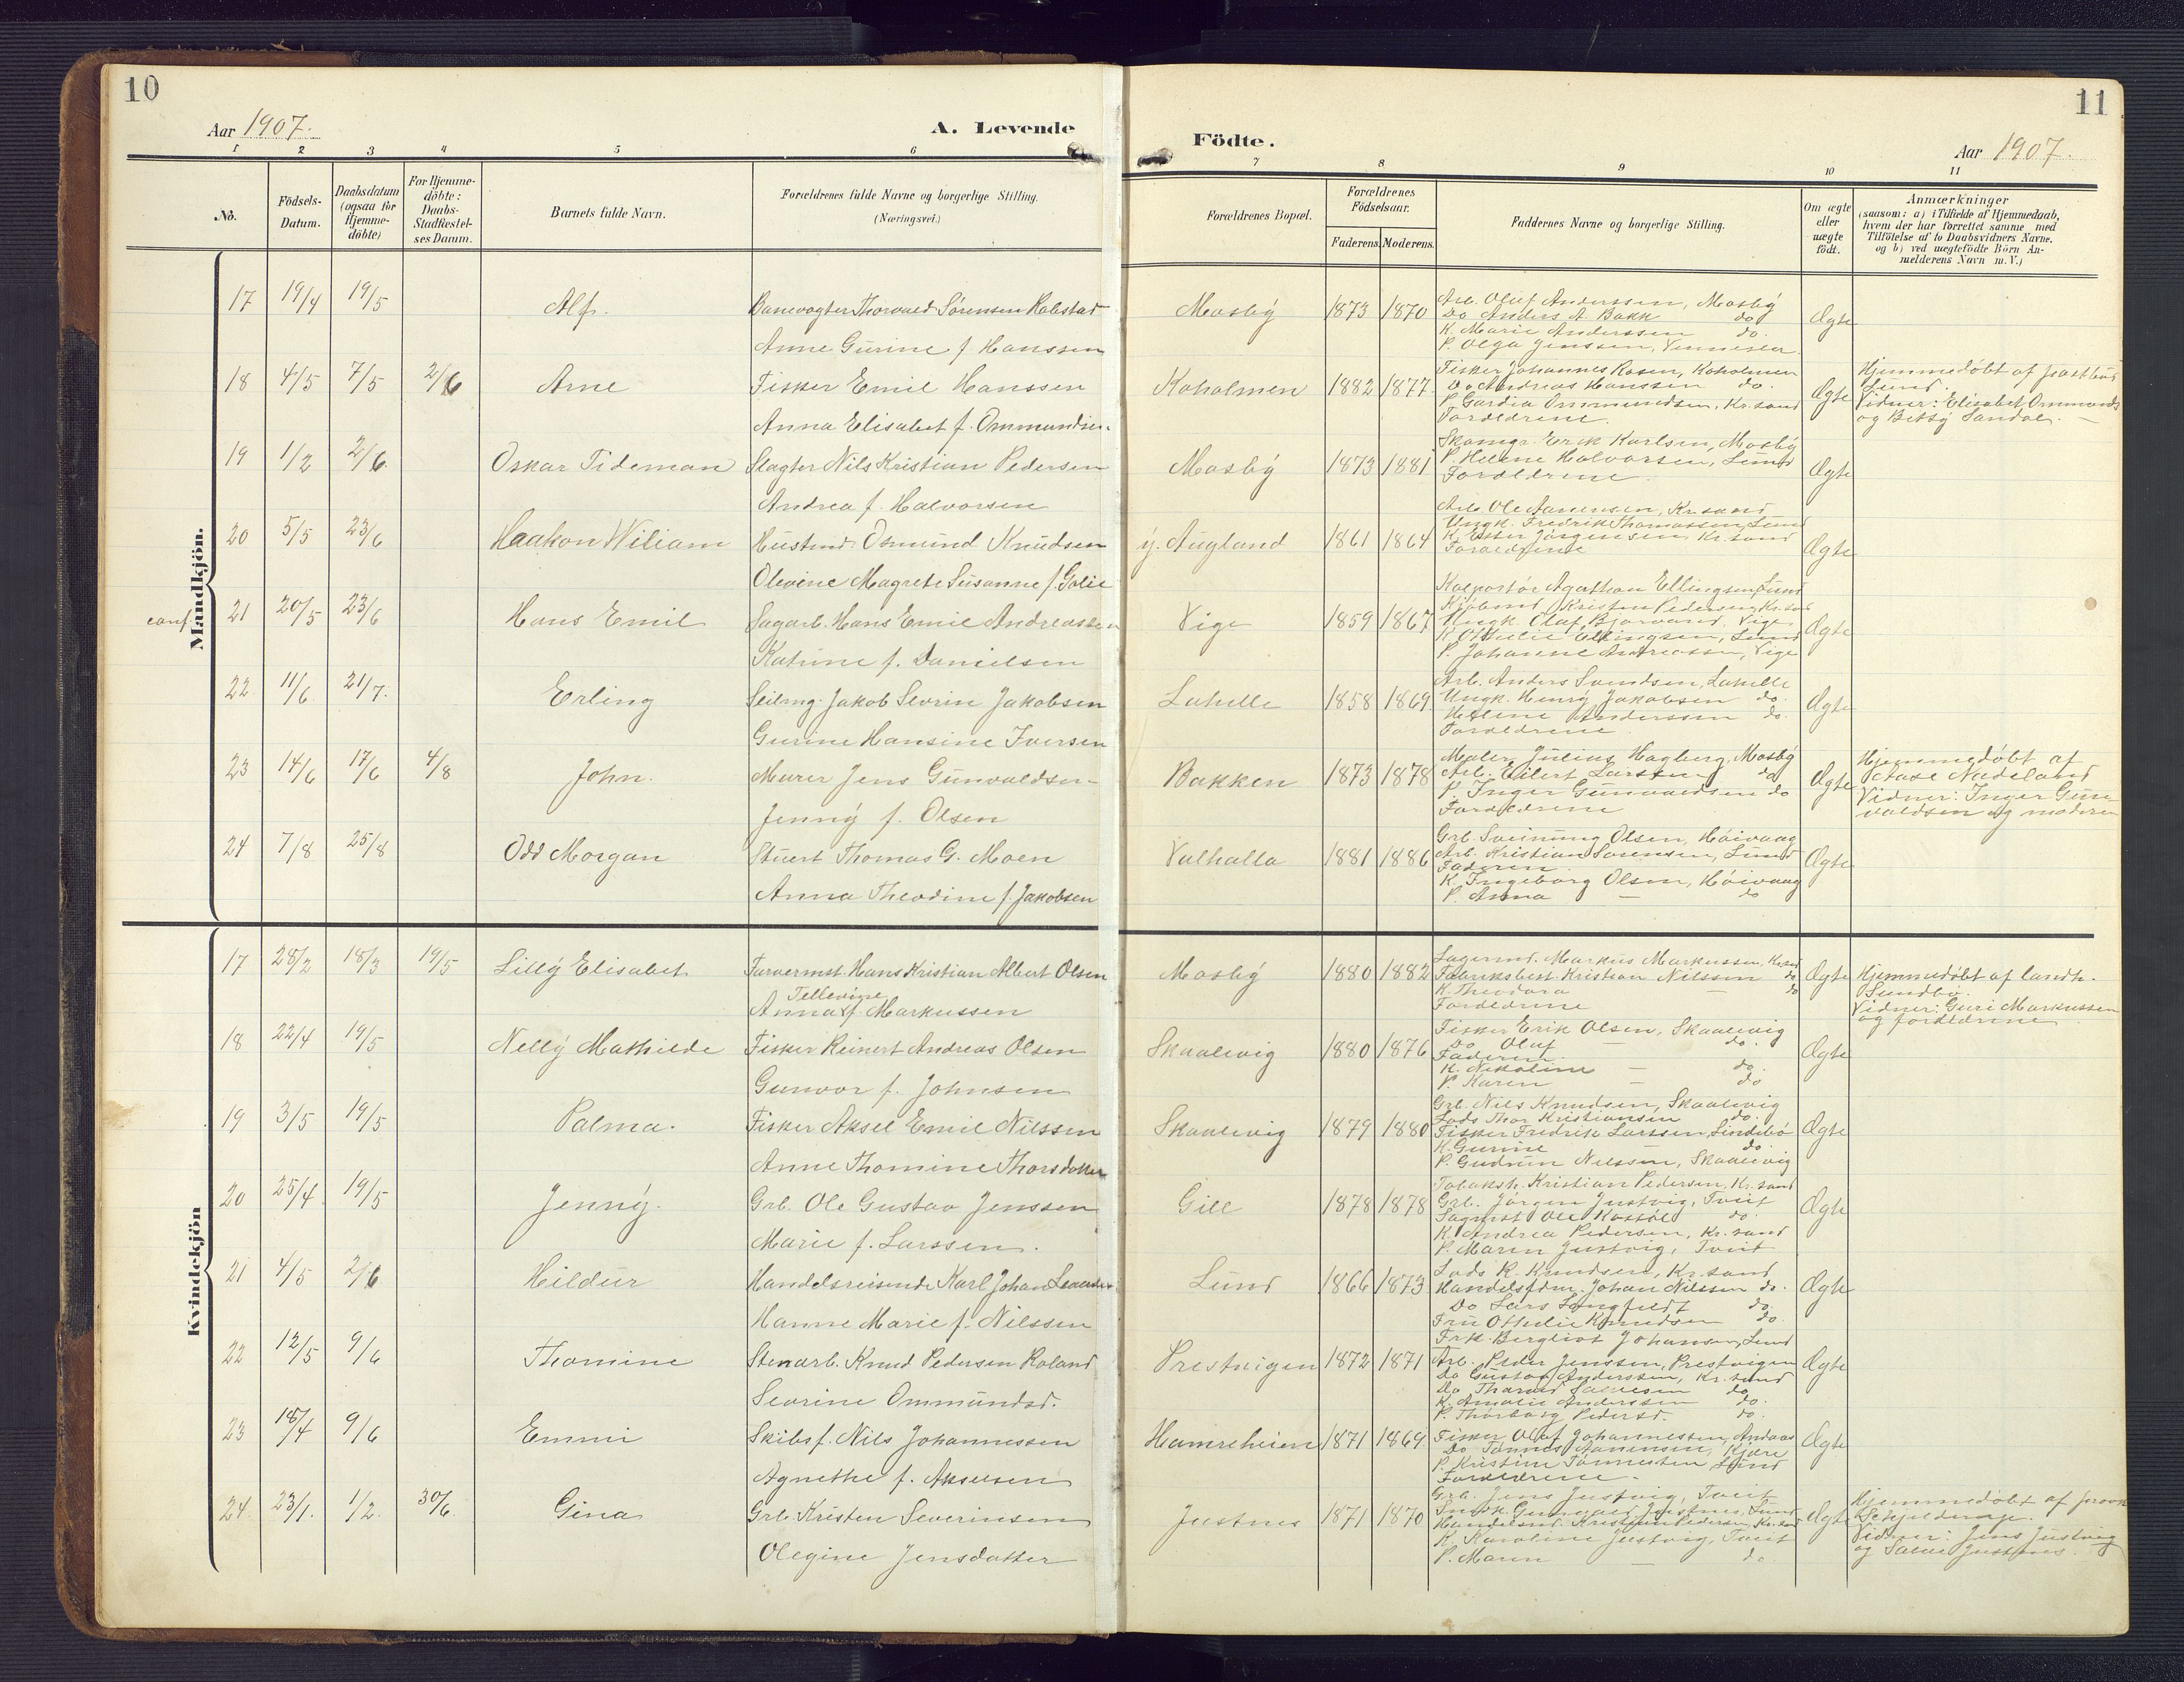 10
Aar 1907.
A. Levende
1 2 3 4 5 6
No.
Födsels-Datum.
Daabsdatum (ogsaa for Hjemme-döbte)
For Hjemme-döbte: Daabs-Stadfæstel-ses Datum.
Barnets fulde Navn.
Forældrenes fulde Navne og borgerlige Stilling.
(Næringsvei.)
Mandkjön.
17 19/4 19/5 Alf. Banevogter Thorvald Sørensen Robstad
Anne Gurine f. Hanssen
18 4/5 7/5 2/6 Arne Fisker Emil Hanssen
Anna Elisabet f. Ommundsen.
19 1/2 2/6. Oskar Tideman Slagter Nils Kristian Pedersen
Andrea f. Halvorsen
20 5/5 23/6 Haakon Wiliam Hüstmd. Osmund Knudsen
Olevine Magrete Susanne f.
conf. 21 20/5 23/6 Hans Emil Sagarb. Hans Emil Andreassen
Katrine f. Danielsen
22. 11/6. 21/7. Erling Seilmg. Jakob Sevrin Jakobsen
Gurine Hansine Iversen
23 14/6 17/6 4/8 John. Murer Jens Günvaldsen
Jenny f. Olsen
24 7/8 25/8 Odd Morgan Stuert Thomas G. Moen
Anna Theodine f. Jakobsen
Kvindekjön
17 28/2 18/3 19/5 Lilly Elisabet Farvermst. Hans Kristian Albert Olsen
Tellevine
Anna f. Markussen
18 22/4 19/5 Nelly Mathilde Fisker Reinert Andreas Olsen
Gunvor f. Johnsen
19 3/5 19/5 Palma. Fisker Aksel Emil Nilssen
Anne Thomine Thorsdatter
20 25/4 19/5 Jenny. Grb. Ole Gustav Jenssen
Marie f. Larssen.
21 4/5 2/6 Hildur Handelsreisende Karl Johan
Hanne Marie f. Nilssen
22 12/5 9/6 Thomine Stenarb. Knud Pedersen Roland
Sevrine Ommündsd.
23 18/4 9/6 Emmi Skibsf. Nils Johannessen
Agnethe f. Akselsen
24. 23/1. 1/2. 30/6. Gina Grb. Kristen Severinsen
Olegine Jensdatter
11
Födte.
Aar 1907.
7 8 9 10 11
Forældrenes Bopæl.
Forældrenes Födselsaar.
Faderens. Moderens.
Faddernes Navne og borgerlige Stilling.
Om ægte eller uægte födt.
Anmærkninger
(saasom: a) i Tilfælde af Hjemmedaab,
hvem der har forrettet samme med
Tilföielse af to Daabsvidners Navne.
og b) ved uægtefödte Börn An-
melderens Navn m. V.)
Mosby 1873 1870 Arb. Oluf Anderssen, Mosby Ægte
Do Anders A. Bakk do
K. Marie Anderssen do.
P. Olga Jenssen, Vennesla
Koholmen 1882 1877 Fisker Johannes Rosen, Koholmen Ægte
Do Andreas Hanssen do.
P. Gardia Ommundsen, Kr.sand
Forældrene.
Hjemmedøbt af
Lund.
Vidner: Elisabet Ommunds
og Betsy Sandal. —
Mosby 1873 1881 Skomgr. Erik Karlsen, Mosby Ægte
P. Helene Halvorsen, Lund
Forældrene.
y. Augland 1861 1864 Arb. Ole Aanensen, Kr.sand Ægte
Ungk. Fredrik Thomassen, Lund
K. Ester Jörgensen Kr.sand
Forældrene
Vige 1859 1867 Kolportör Agathon Ellingsen, Lund Ægte
Kjöbmd. Kristen Pedersen, Kr.sand
Ungk. Oluf Bjorvand, Vige
K. Othelie Ellingsen, Lund
P. Johanne Andreassen, Vige
Lahelle 1858 1869 Arb. Anders Svendsen, Lahelle Ægte
Ungk. Henry Jakobsen do.
Helene Anderssen do.
Forældrene.
Bakken 1873 1878 Maler Julius Hagberg, Mosby Ægte
Arb. Eilert Larssen do
P. Inger Gunvaldsen do
Forældrene
Hjemmedøbt af
Aase Nadeland
Vidner: Inger Gun-
valdsen og moderen
Valhalla 1881 1886 Grb. Sveinung Olsen, Höivaag Ægte
Arb. Kristian Sorensen, Lund
Faderen.
K. Ingeborg Olsen, Höivaag
P. Anna — do
Mosby 1880 1882 Lagermst. Markus Markussen, Kr.sd Ægte
Fabriksbest. Kristian Nilssen do
K. Theodora — do
Forældrene
Hjemmedøbt af landh.
Sundbö.
Vidner: Guri Markussen
og forældrene
Skaalevig 1880 1876 Fisker Erik Olsen, Skaalevig Ægte
Do Oluf — do.
Faderen.
K. Nikoline — do.
P. Karen — do
Skaalevig 1879 1880 Grb. Nils Knudsen, Skaalevig Ægte
Lods Thor Kristiansen do.
Fisker Fredrik Larssen, Lindebö
K. Gurine — do.
P. Gudrun Nilssen, Skaalevig
Gill 1878 1878 Tobaksh. Kristian Pedersen, Kr.sand Ægte
Grb. Jörgen Justvig, Tveit
Sagmst. Ole Kostöl do.
K. Andrea Pedersen, Kr.sand
P. Maren Justvig, Tveit
Lund 1866 1873 Lods R. Knudsen, Kr.sand Ægte
Handelsfdm. Johan Nilssen do.
Do Lars Langfeldt do.
Fru Othelie Knudsen do.
Frk. Bergliot Johansen, Lund
Prestvigen 1872 1871 Arb. Peder Jenssen, Prestvigen Ægte
Do Gustav Anderssen, Kr.sand
Do Tharald Salvesen do
K. Amalie Anderssen do.
P. Thorborg Pedersd. do.
Hamreheien 1871 1869. Fisker Olaf Johannessen, Andaas Ægte
Do Tönnes Aanensen, Kjære
P. Kristine Tönnessen Lund
Forældrene.
Justnes 1871 1870 Grb. Jens Justvig, Tveit Ægte
Justnes, Lund
Handelsmd. Kristian Pedersen, Kr.sand
K. Karoline Justvig, Tveit
P. Maren — do.
Hjemmedøbt af provst
Schjelderup.
Vidner: Jens Justvig
og Salve Justnes.